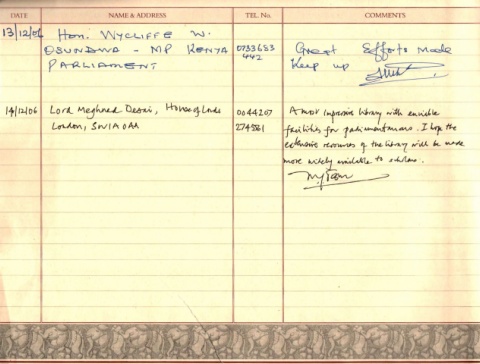 DATE NAME & ADDRESS TEL. No. COMMENTS
13/12/06 Hon. WYCLIFFE W.
OSUNDWA - MP KENYA
PARLIAMENT
0733683
442
Great Efforts Made
Keep up
14/12/06 Lord Meghnad Desai, House of Lords
London, SW1A 0AA
0044207
A most impressive library with enviable
facilities for parliamentarians. I hope the
extensive resources of the library will be made
more widely available to scholars.